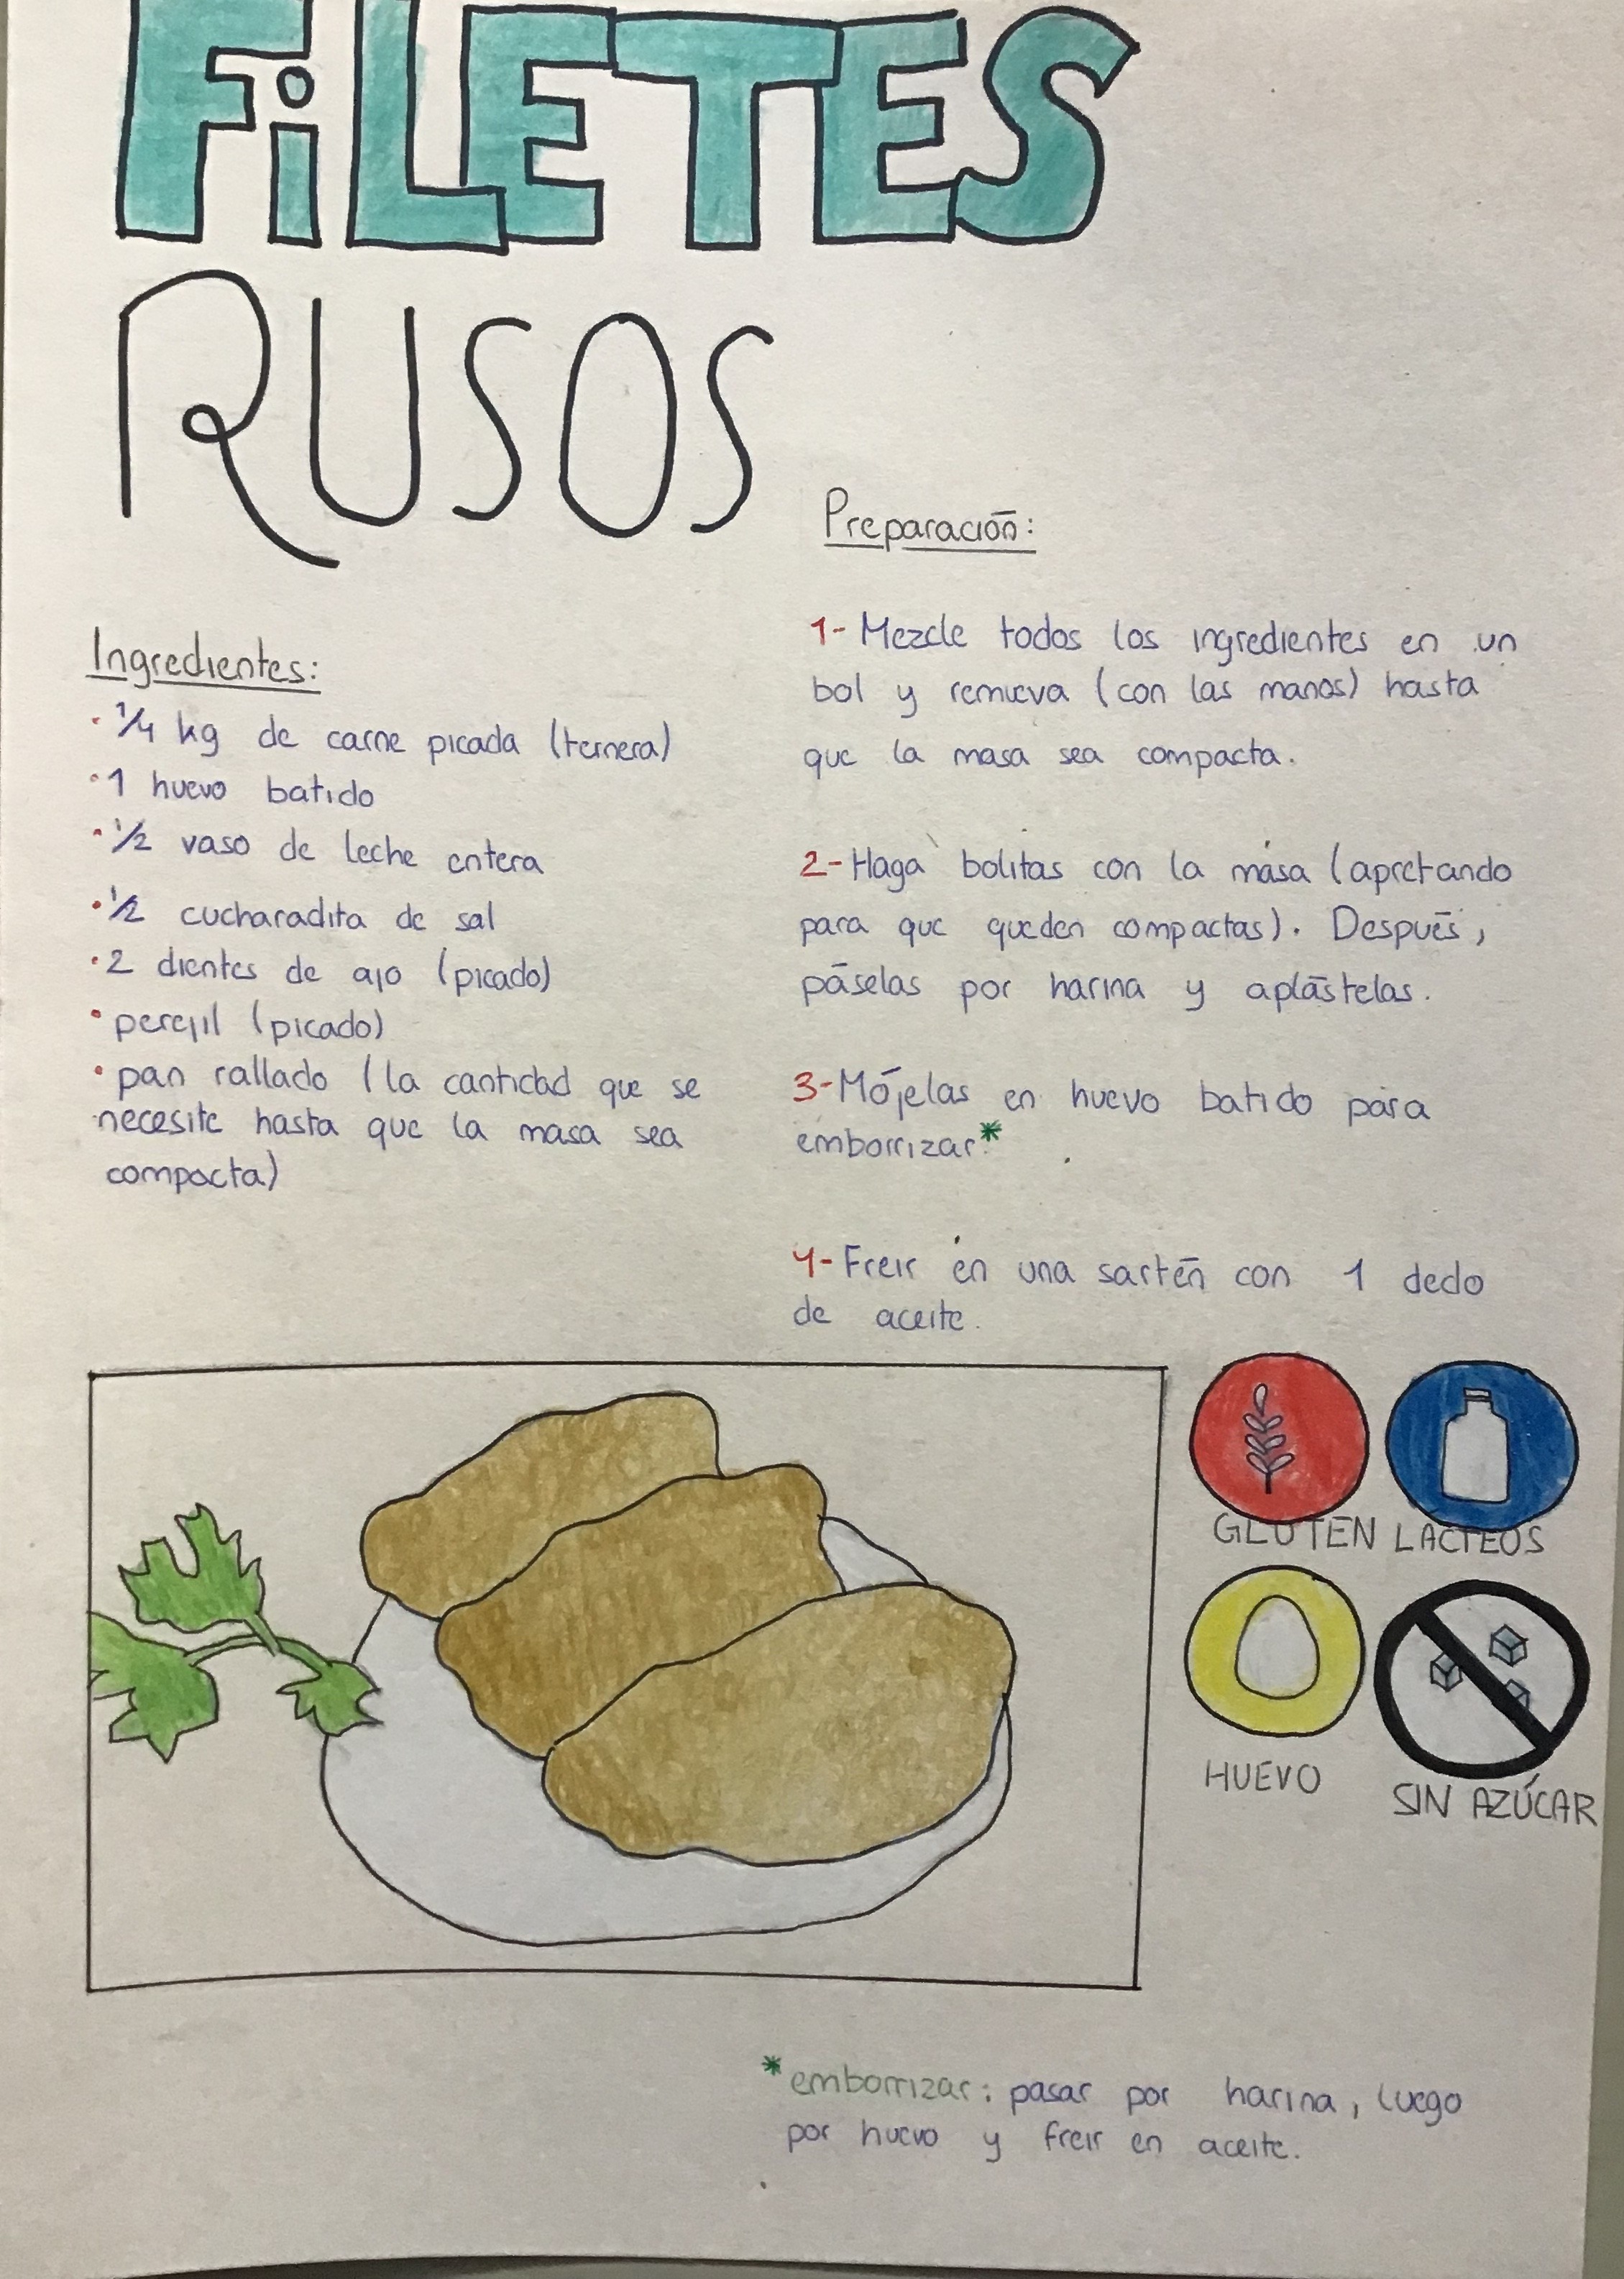 FiLETES
RUSOS
Ingredientes:
· 1/4 kg de carne picada (ternera)
· 1 huevo batido
· 1/2 vaso de leche entera
· 1/2 cucharadita de sal
· 2 dientes de ajo (picado)
· perejil (picado)
· pan rallado (la cantidad que se
necesite hasta que la masa sea
compacta)
Preparación:
1- Mezcle todos los ingredientes en un
bol y remueva (con las manos) hasta
que la masa sea compacta.
2- Haga bolitas con la masa (apretando
para que queden compactas). Después,
páselas por harina y aplástelas.
3- Mójelas en huevo batido para
emborrizar.*
4- Freir en una sartén con 1 dedo
de aceite.
GLUTEN LACTEOS
HUEVO
SIN AZÚCAR
*emborrizar: pasar por harina, luego
por huevo y freir en aceite.